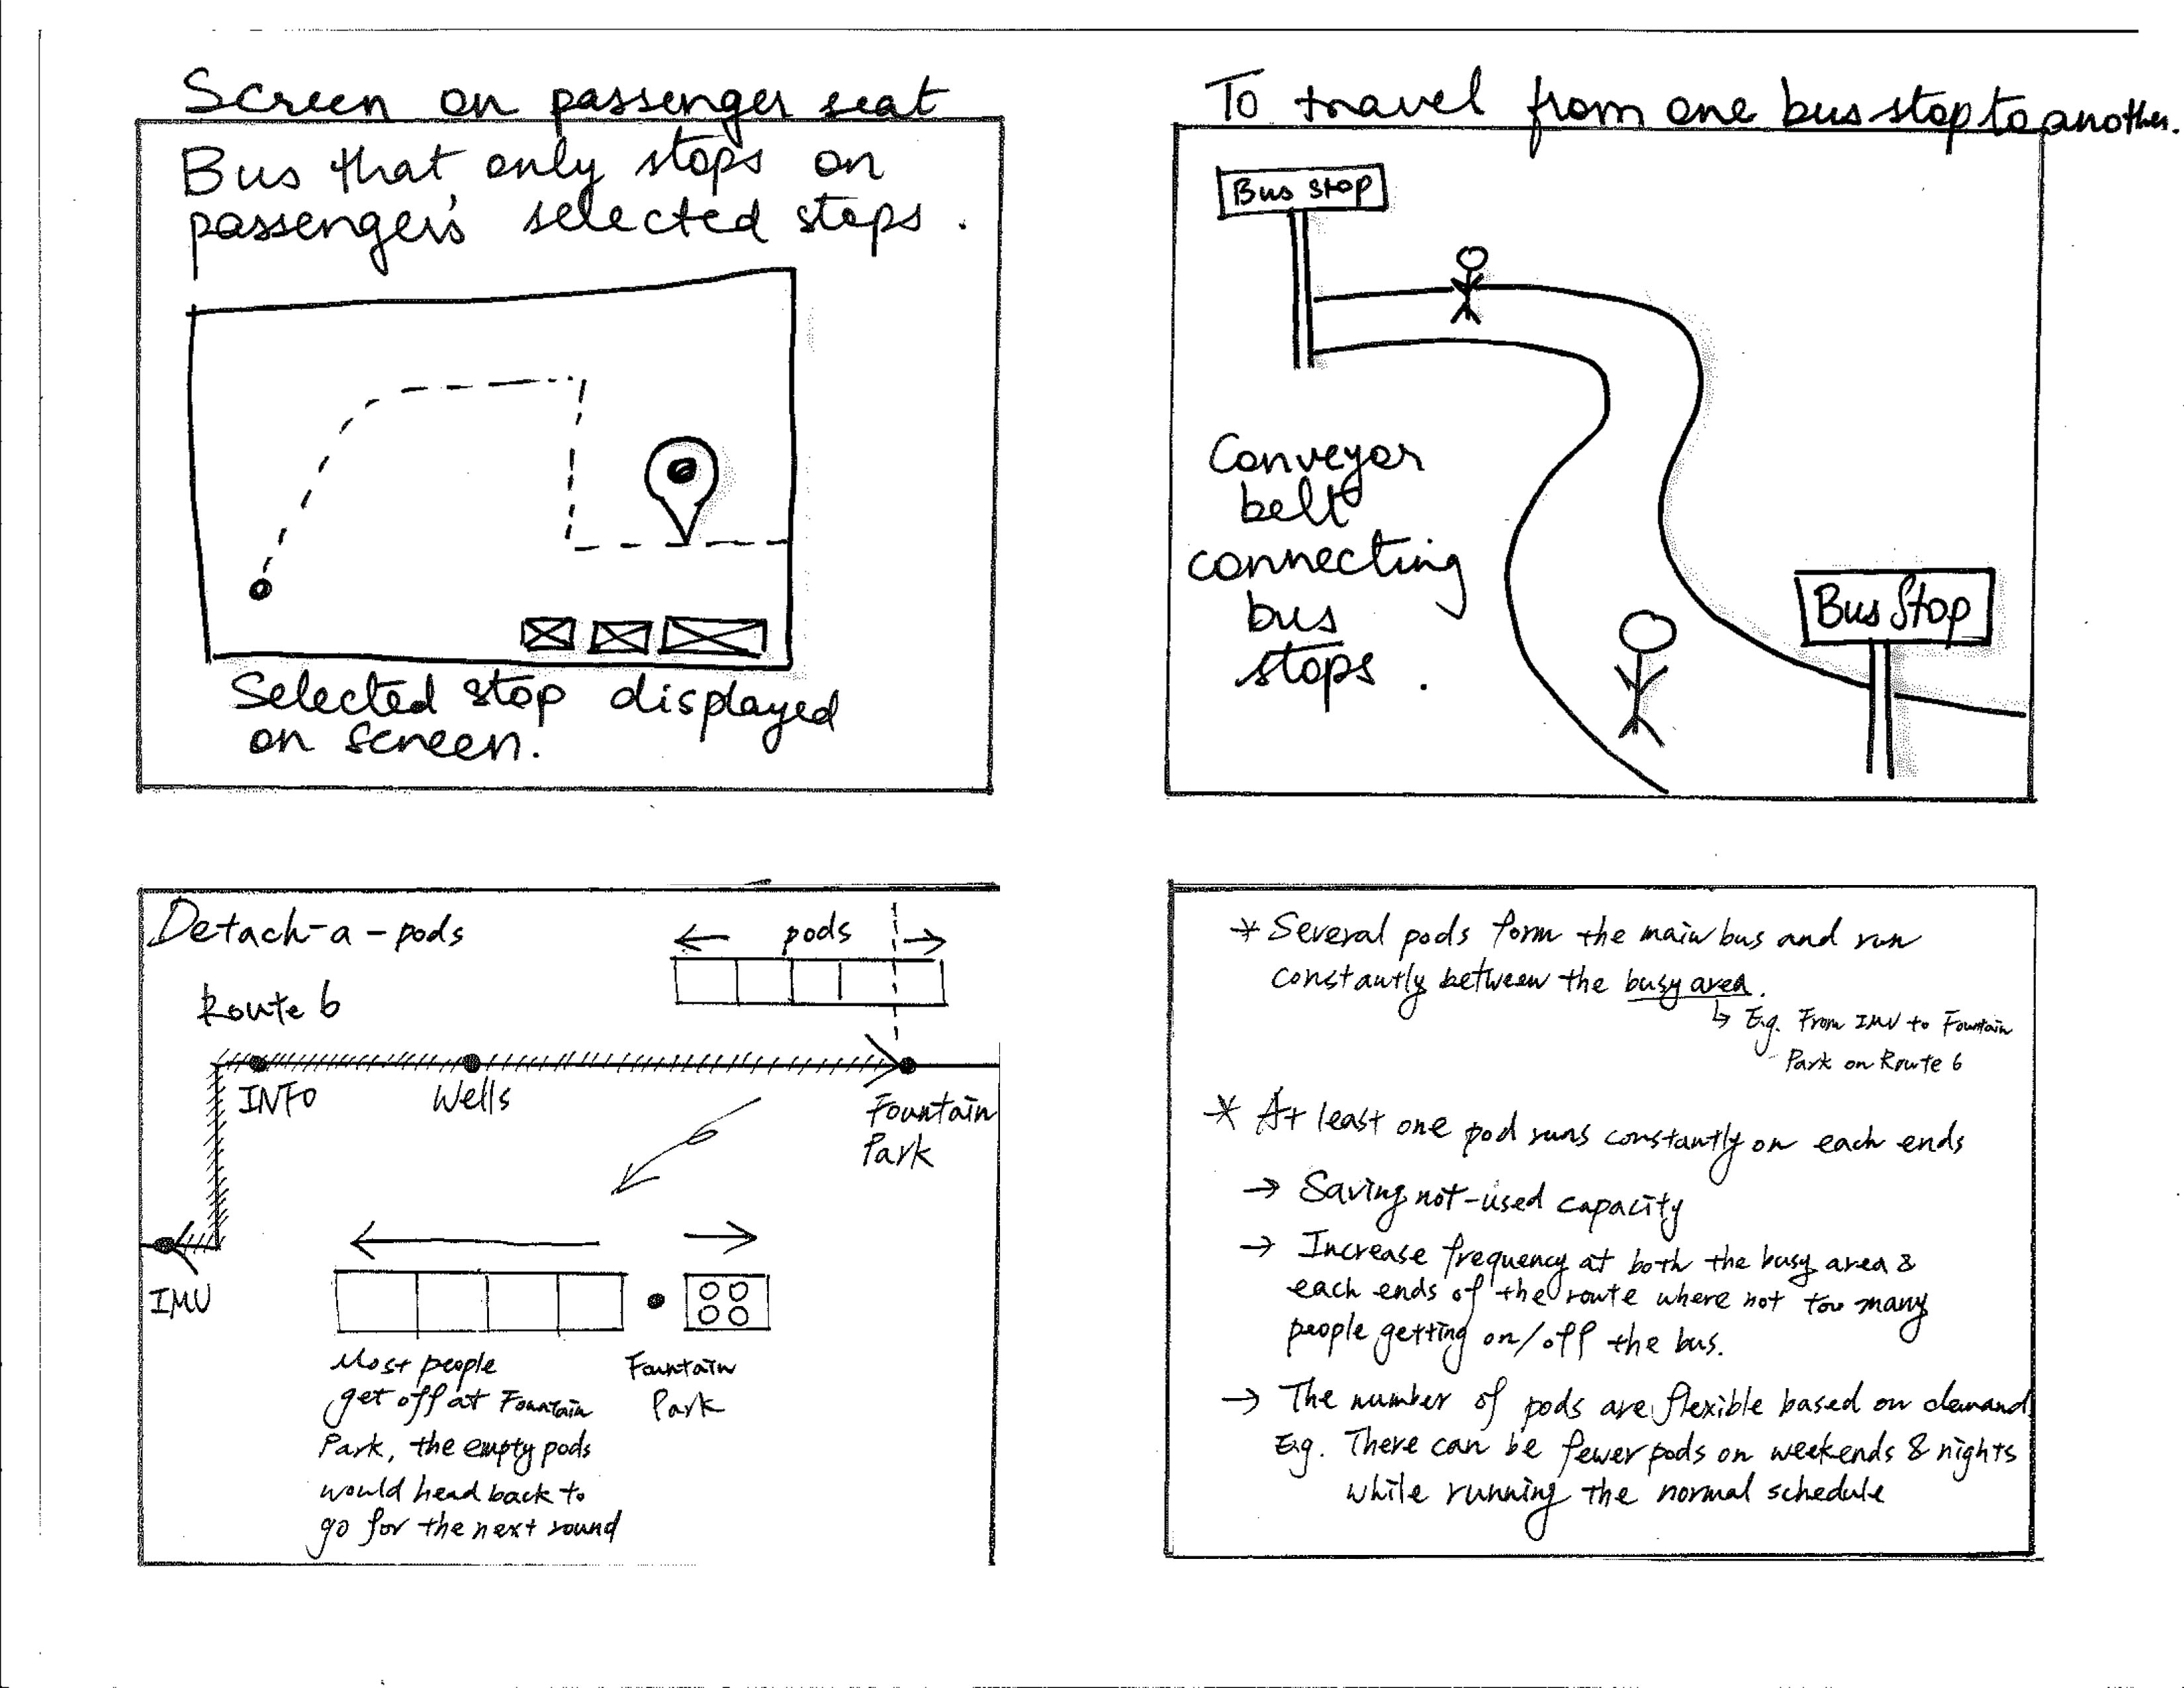 Screen on passenger seat
Bus that only stops on
passenger's selected stops.
Selected stop displayed
on screen.
To travel from one bus stop to another.
Bus stop
Conveyor
belt
connecting
bus
stops.
Bus Stop
Detach-a-pods
pods
Route 6
INFO
Wells
Fountain
Park
IMU
Most people
get off at Fountain
Park, the empty pods
would head back to
go for the next round
Fountain
Park
* Several pods form the main bus and run
constantly between the busy area.
↳ E.g. From IMU to Fountain
Park on Route 6
* At least one pod runs constantly on each ends
→ Saving not-used capacity
→ Increase frequency at both the busy area &
each ends of the route where not too many
people getting on/off the bus.
→ The number of pods are flexible based on demand
E.g. There can be fewer pods on weekends & nights
while running the normal schedule